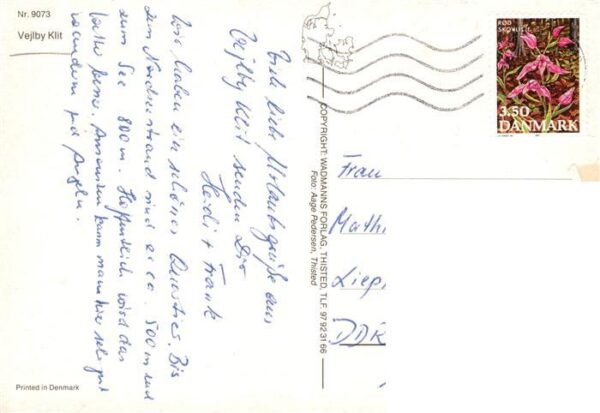 Nr. 9073
Vejlby Klit
Viele liebe Urlaubsgrüße aus
Vejlby Klit senden Dir
Heidi + Frank
Wir haben ein schönes Quartier. Bis
zum Nordseestrand sind es ca. 500 m und
zum See 800 m. Hoffentlich wird das
Wetter besser. Ansonsten kann man hier sehr gut
wandern und Angeln.
COPYRIGHT: WADMANNS FORLAG, THISTED, TLF. 97 92 31 66
Foto: Aage Pedersen, Thisted
RØD
SKOVLILJE
3.50
DANMARK
Frau
Marth
Liep
DDR
Printed in Denmark